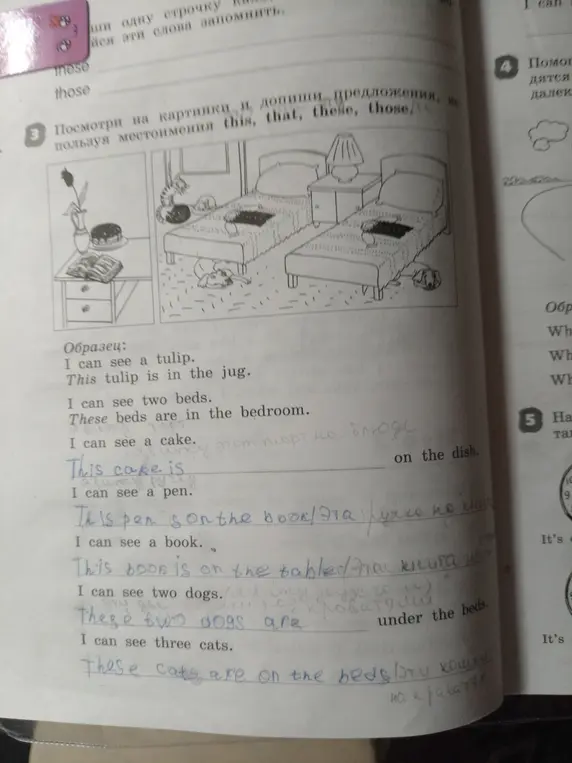 ши одну строчку
йся эти слова запомнить.
these
those
3 Посмотри на картинки и допиши предложения, ис
пользуя местоимения this, that, these, those.
Образец:
I can see a tulip.
This tulip is in the jug.
I can see two beds.
These beds are in the bedroom.
I can see a cake.
This cake is on the dish.
I can see a pen.
This pen s on the book/Эта ручка на
I can see a book.
This book is on the table/Эта книга
I can see two dogs.
These two dogs are under the beds.
I can see three cats.
These cats are on the beds/Эти кошки
I can
4 Помо
дятся
далек
Обр
Wh
Wh
Wh
5 На
та
It's
It's